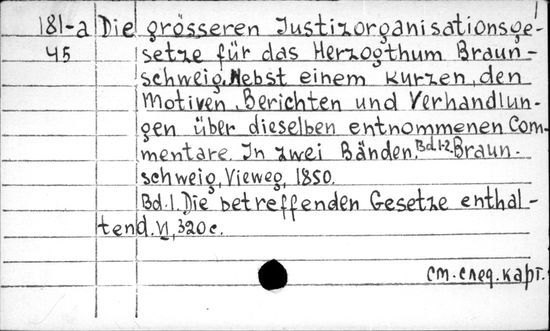 181-a Die grösseren Justizorganisationsge-
45 setze für das Herzogthum Braun-
schweig. Nebst einem kurzen, den
Motiven, Berichten und Verhandlun-
gen über dieselben entnommenen Com-
mentare. In zwei Bänden. Bd.1-2. Braun-
schweig, Vieweg, 1850.
Bd.1. Die betreffenden Gesetze enthal-
tend. VI, 320с.
см. след. карт.